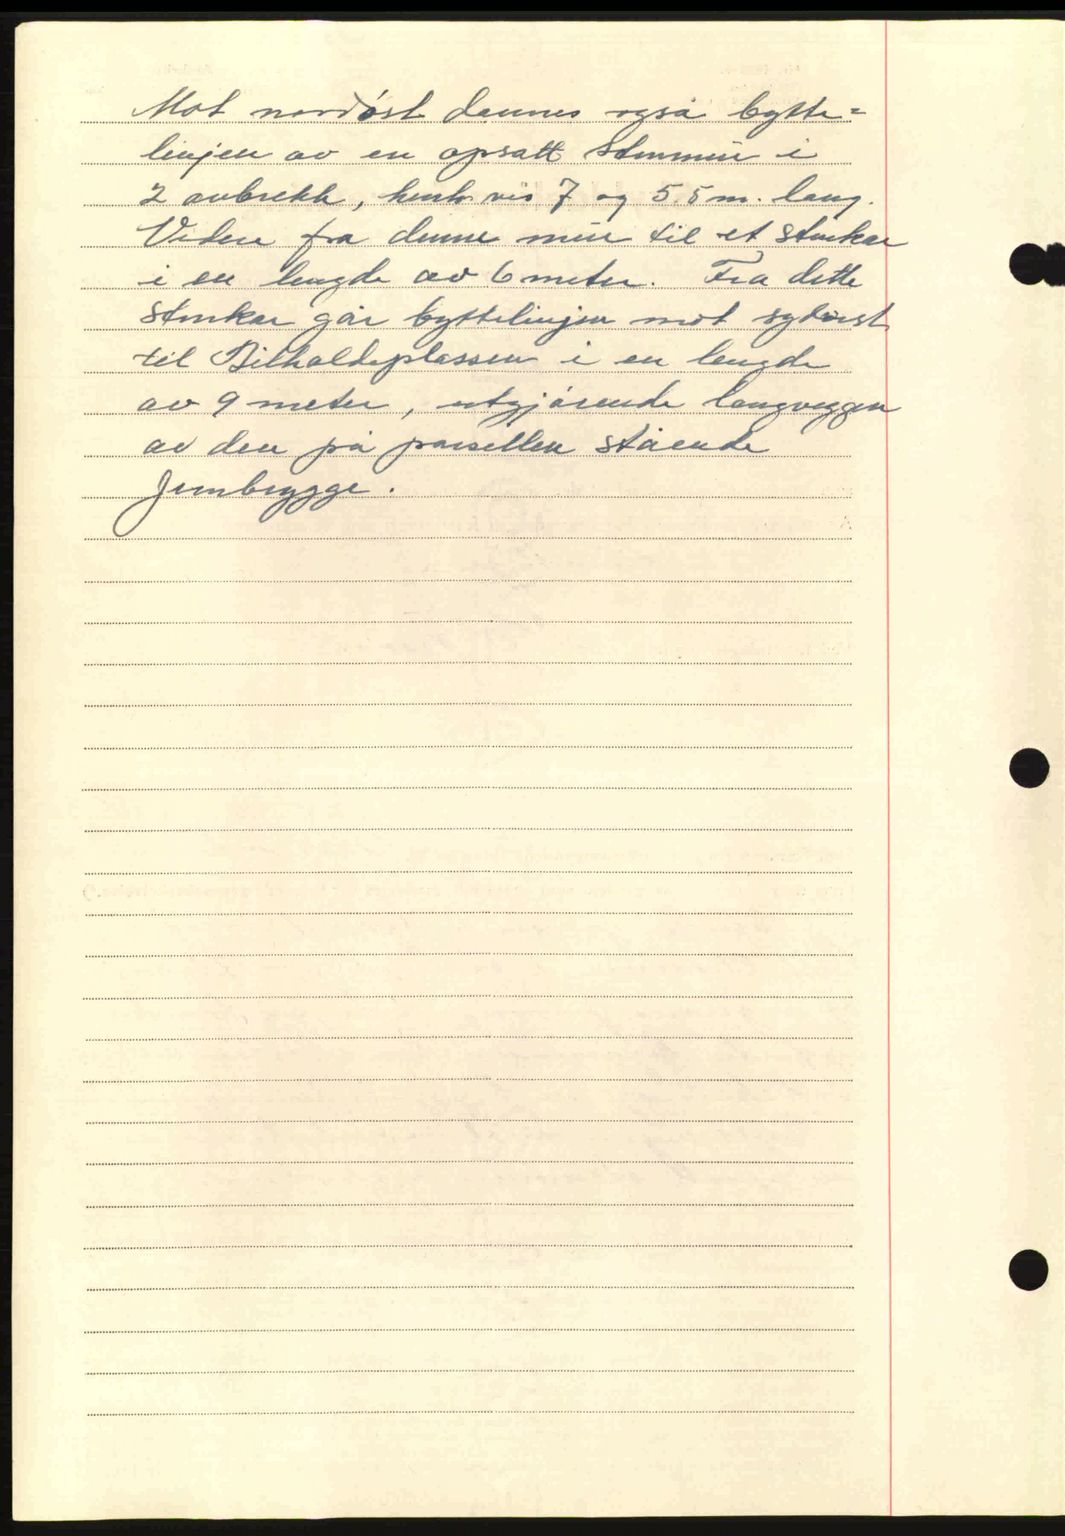 Mot nordöst dannes også bytte=
linjen av en opsatt stenmur i
2 avbrekk, henh.vis 7 og 5.5 m. lang.
Videre fra denne mur til et stenkar
i en lengde av 6 meter. Fra dette
stenkar går byttelinjen mot sydöst
til Bilholdeplassen i en lengde
av 9 meter, utgjörende langveggen
av den på parsellen stående
Jernbrygge.